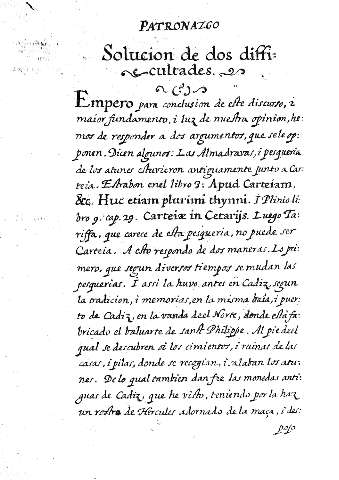 PATRONAZGO
Solucion de dos diffi-
cultades.
Empero para conclusion de este discurso, i
maior fundamento, i luz de nuestra opinion, he-
mos de responder a dos argumentos, que se le op-
ponen. Dicen algunos: Las Almadravas, i pesqueria
de los atunes estuvieron antiguamente junto a Car-
teia. Estrabon en el libro 3: Apud Carteiam,
&c. Huc etiam plurimi thynni. I Plinio li-
bro 9. cap. 29. Carteiæ in Cetarijs. Luego Ta-
riffa, que carece de esta pesqueria, no puede ser
Carteia. A esto respondo de dos maneras. Lo pri-
mero, que segun diversos tiempos se mudan las
pesquerias. I assi la huvo antes en Cadiz, segun
la tradicion, i memorias, en la misma baía, i puer-
to de Cadiz, en la vanda del Norte, donde está fa-
bricado el baluarte de sant Philippe. Al pie del
qual se descubren si los cimientos, i ruinas de las
casas, i pilas, donde se recogian, i salaban los atu-
nes. De lo qual tambien dan fee las monedas anti-
guas de Cadiz, que he visto, teniendo por la haz
un rostro de Hercules adornado de la maça, i des-
pojo